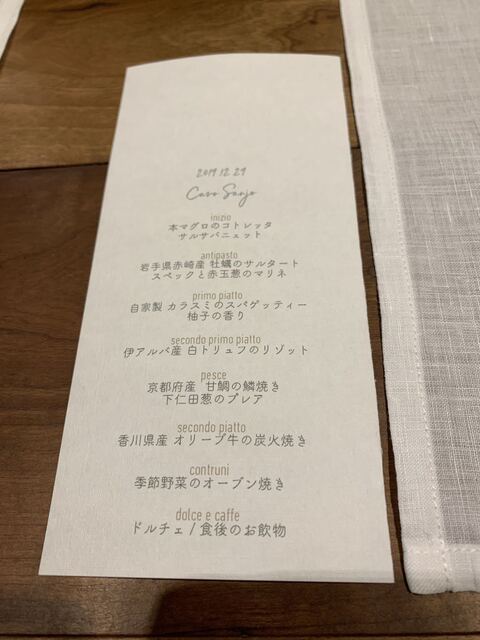 2019.12.29
Caro Sanjo
inizio
本マグロのコトレッタ
サルサバニェット
antipasto
岩手県赤崎産 牡蠣のサルタート
スペックと赤玉葱のマリネ
primo piatto
自家製 カラスミのスパゲッティー
柚子の香り
secondo primo piatto
伊アルバ産 白トリュフのリゾット
pesce
京都府産 甘鯛の鱗焼き
下仁田葱のプレア
secondo piatto
香川県産 オリーブ牛の炭火焼き
contruni
季節野菜のオーブン焼き
dolce e caffe
ドルチェ / 食後のお飲物